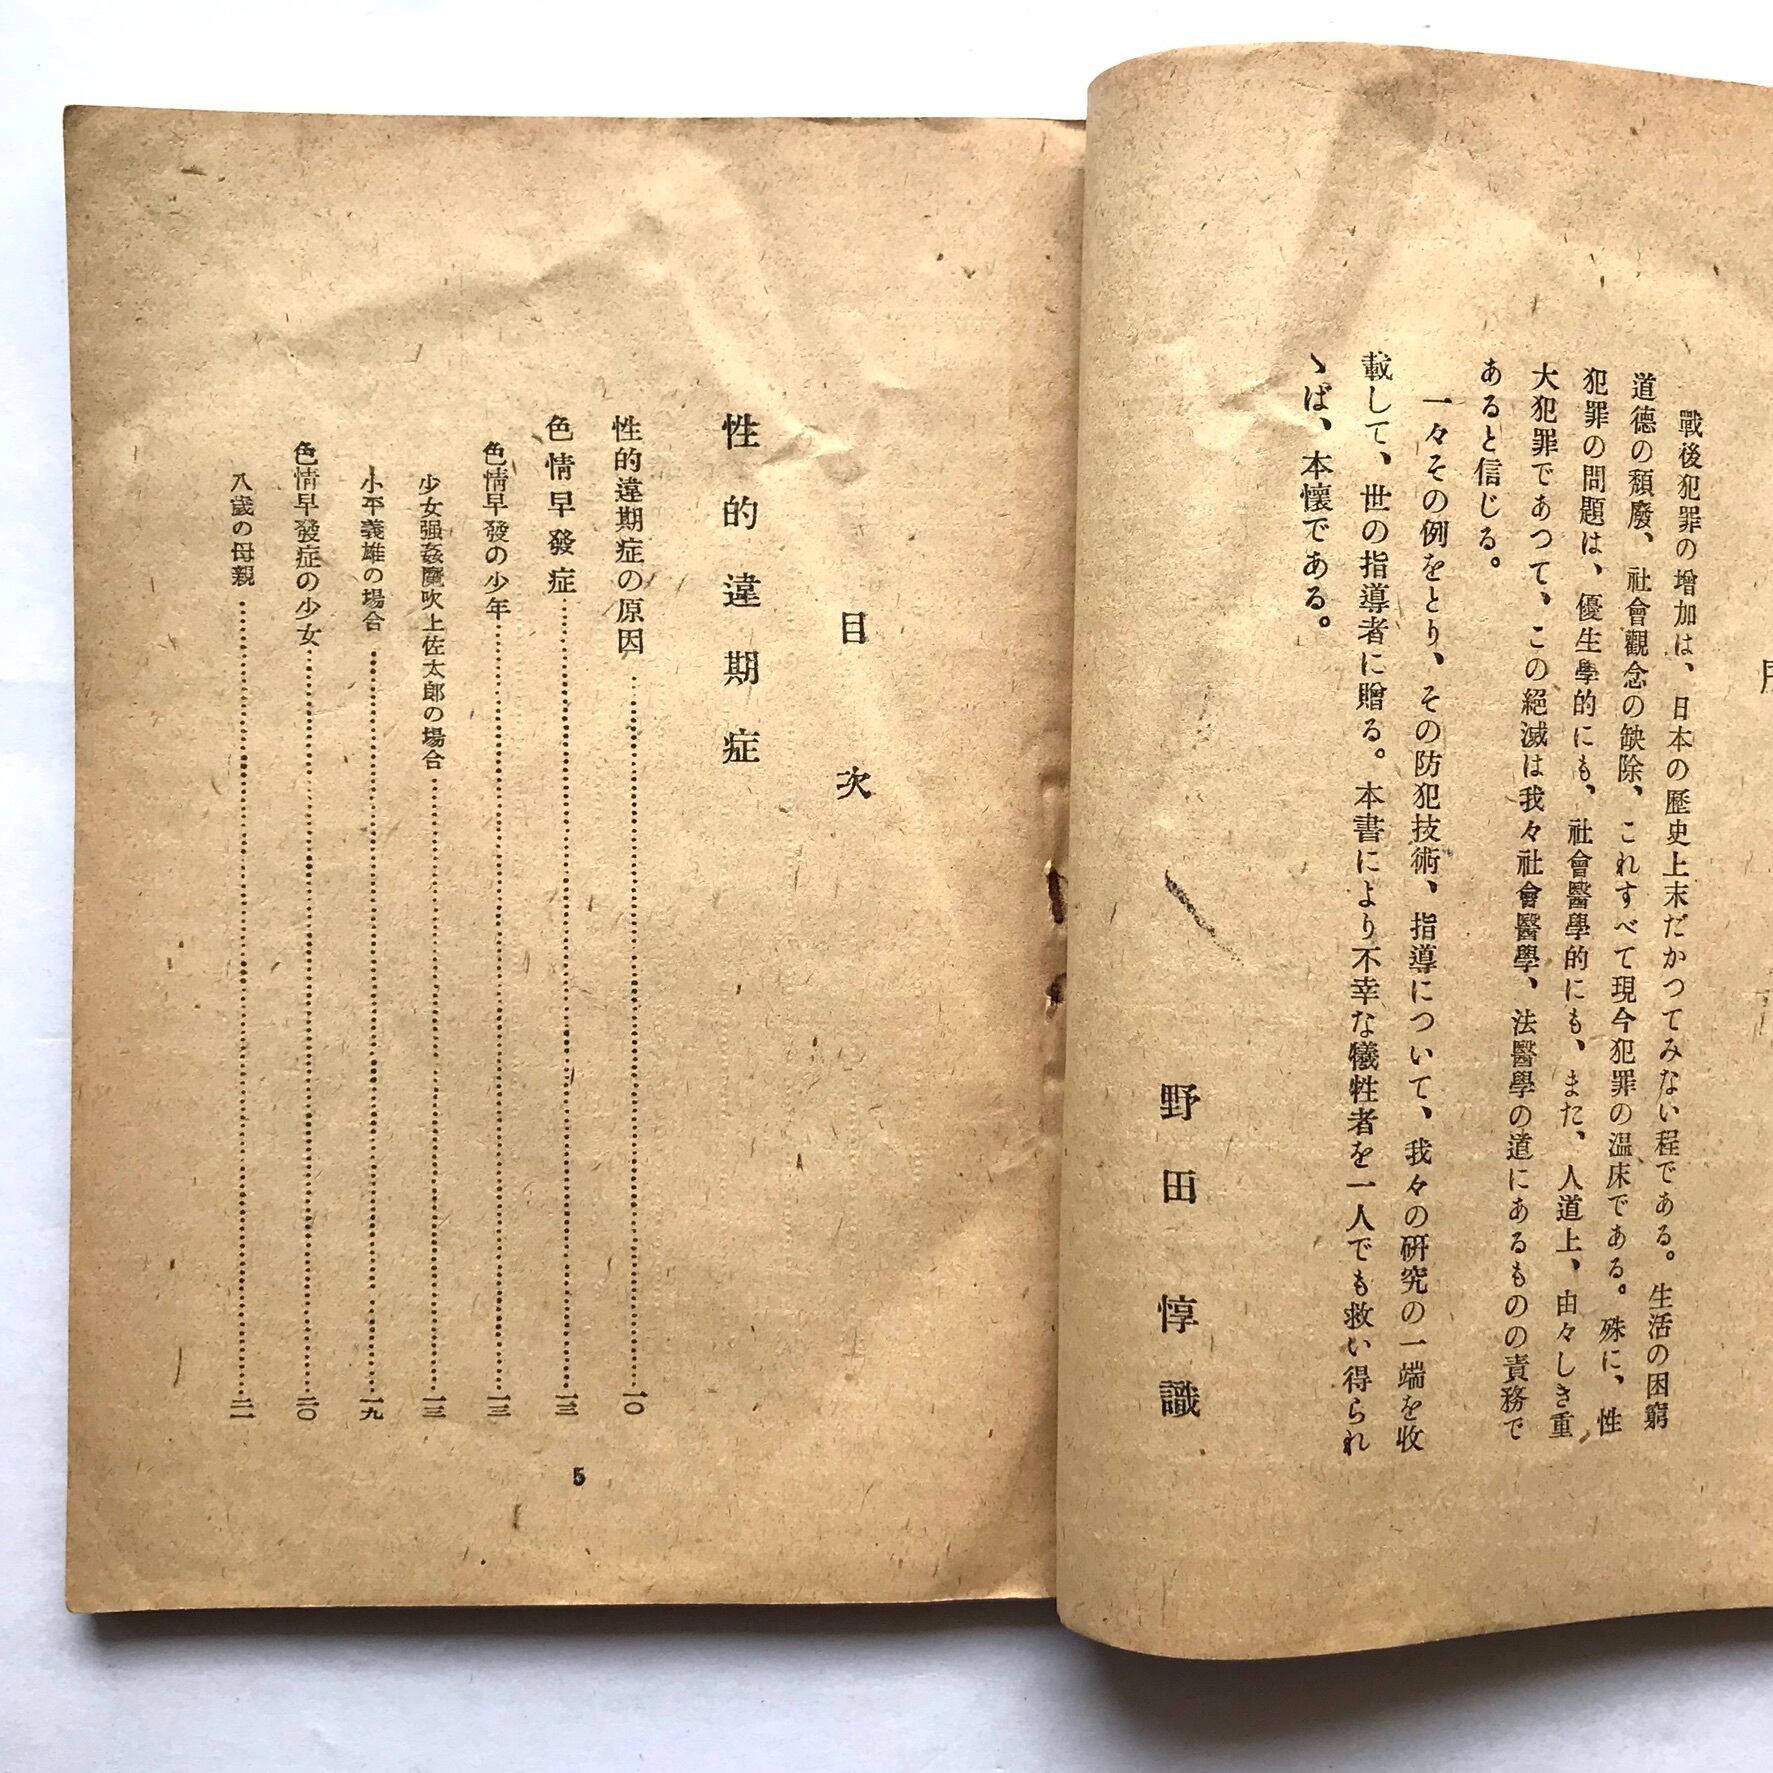 戰後犯罪の增加は、日本の歷史上末だかつてみない程である。生活の困窮
道德の頽廢、社會觀念の缺除、これすべて現今犯罪の溫床である。殊に、性
犯罪の問題は、優生學的にも、社會醫學的にも、また、人道上、由々しき重
大犯罪であつて、この絕滅は我々社會醫學、法醫學の道にあるものの責務で
あると信じる。
一々その例をとり、その防犯技術、指導について、我々の硏究の一端を收
載して、世の指導者に贈る。本書により不幸な犧牲者を一人でも救い得られ
ゝば、本懷である。
野田惇識
目次
性的違期症
性的違期症の原因……一〇
色情早發症……一三
色情早發の少年……一三
少女强姦魔吹上佐太郎の場合……一三
小平義雄の場合……一九
色情早發症の少女……二〇
八歲の母親……二一
5